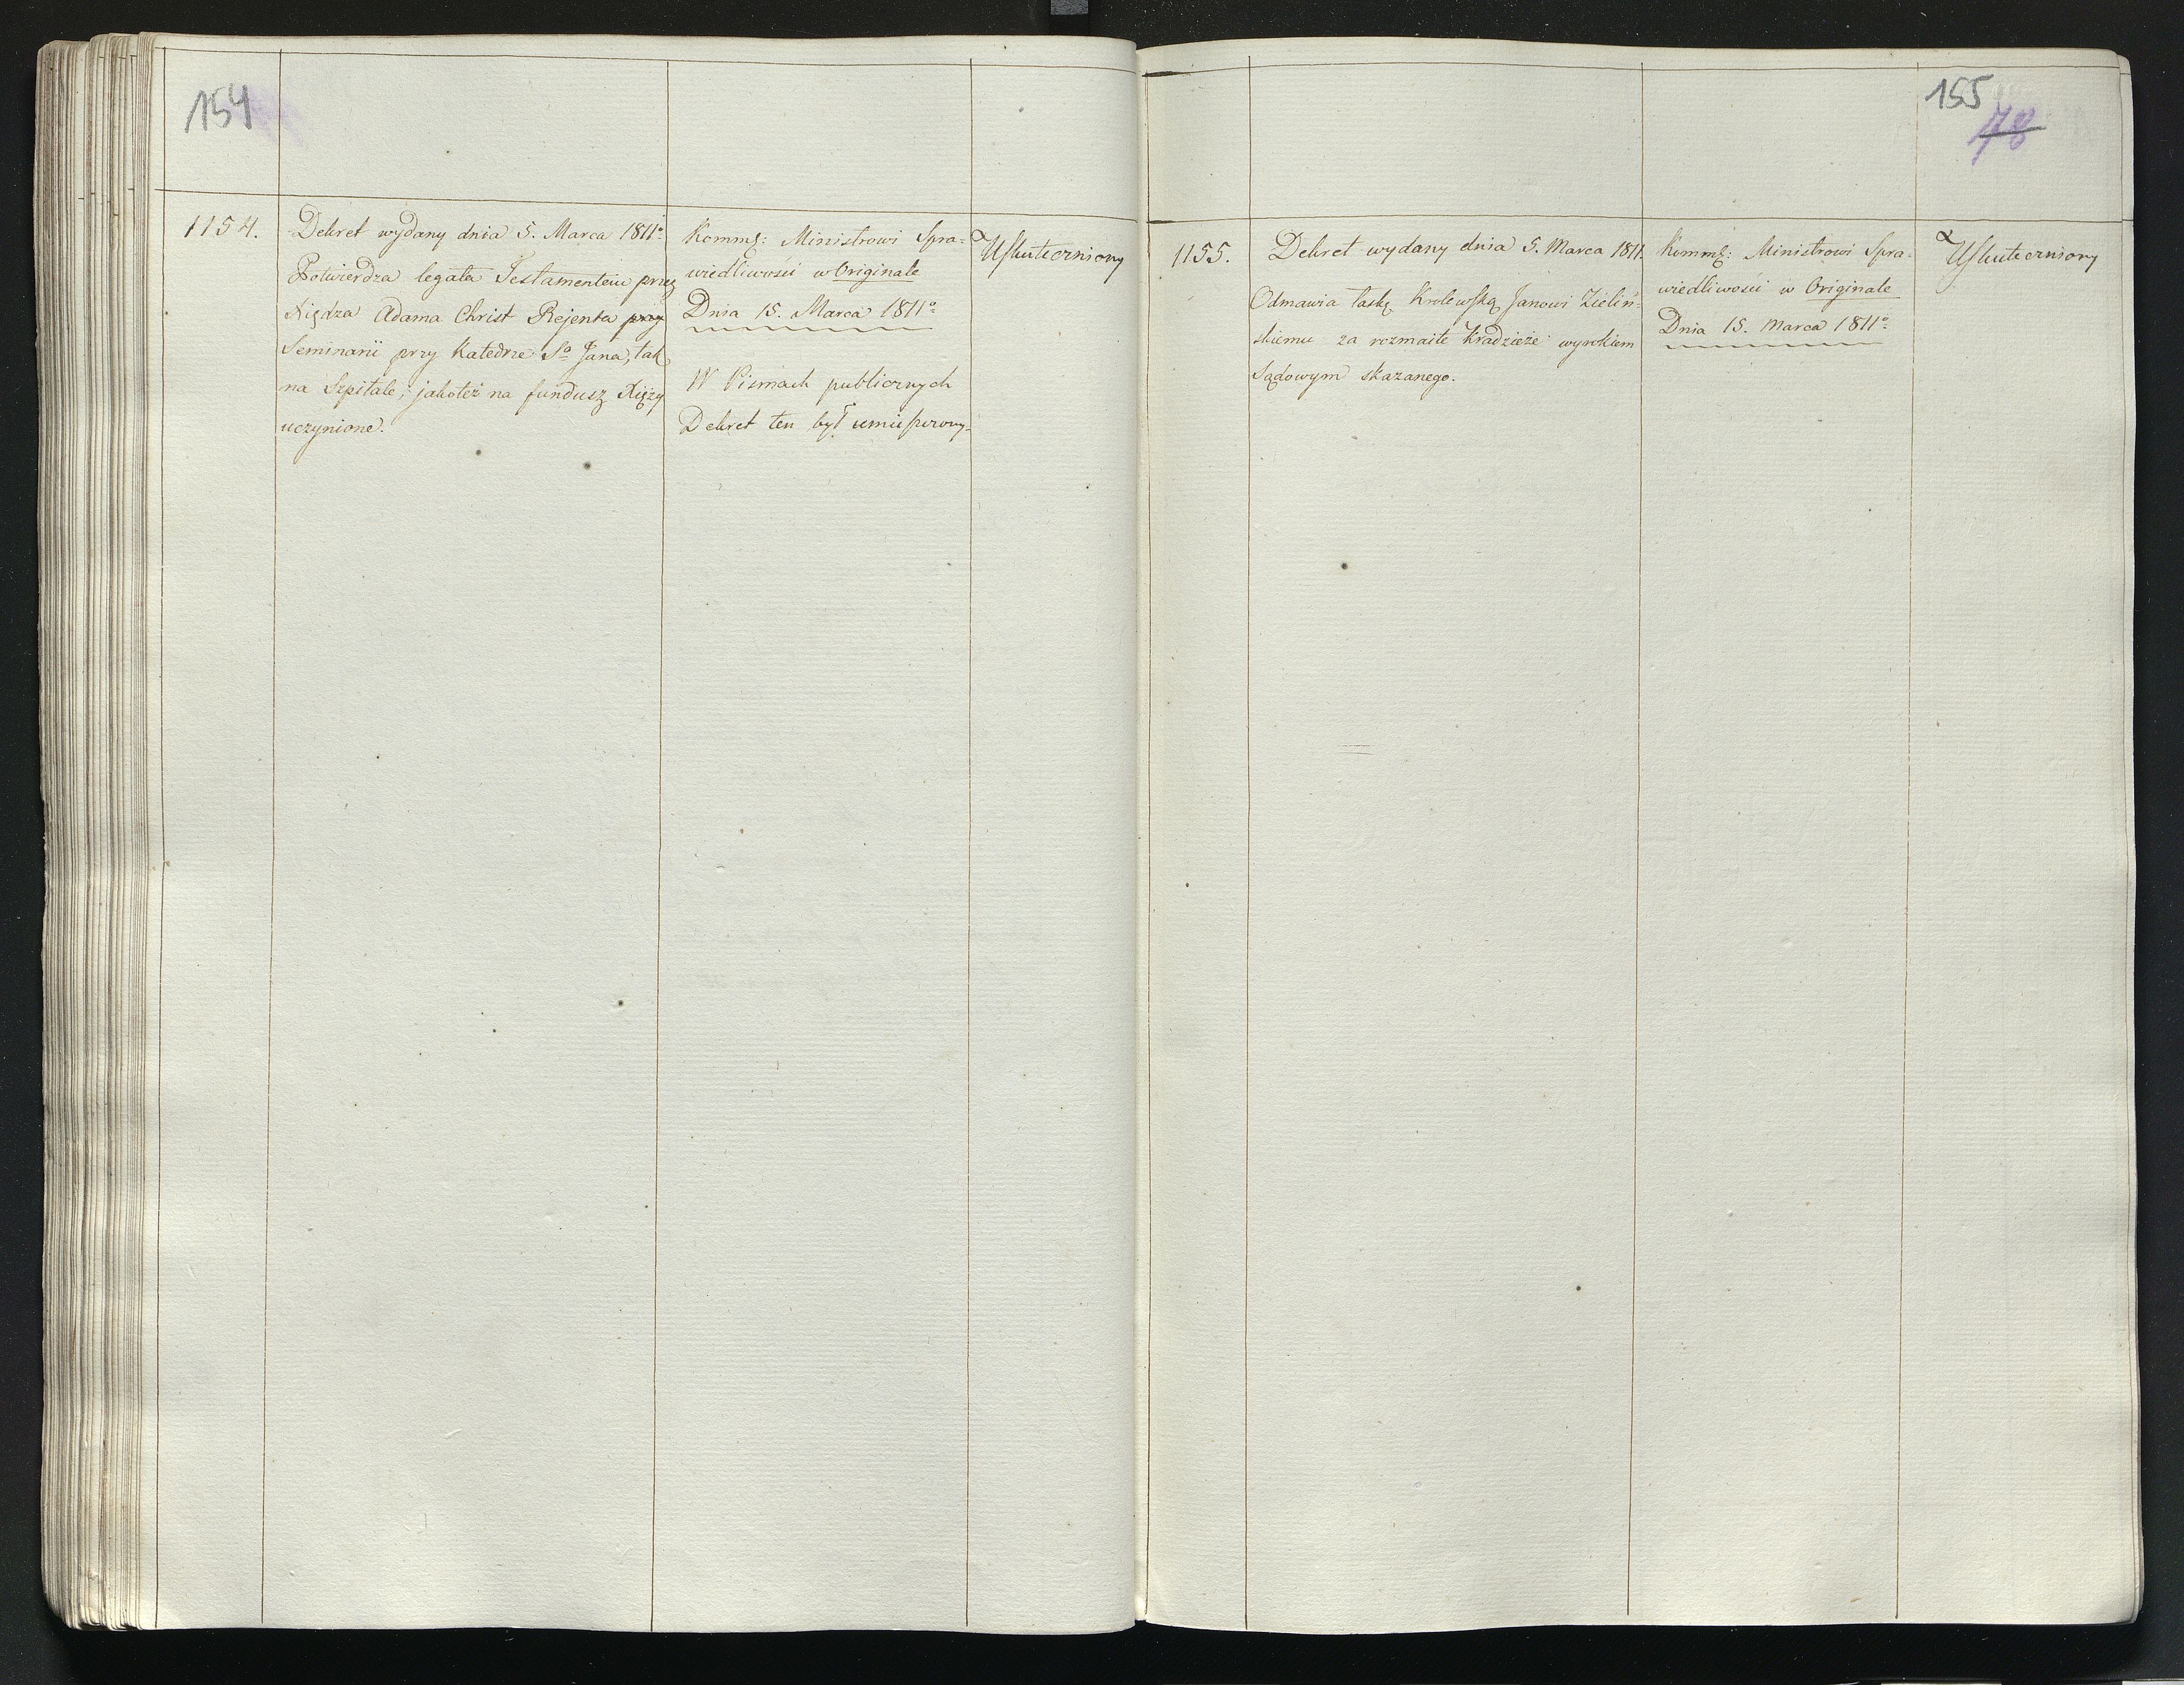 154
1154.
Dekret wydany dnia 5. Marca 1811º
Potwierdza legata Testamentem przez
Xiędza Adama Christ Rejenta przy
Seminarii przy Katedrze Sº Jana, tak
na Szpitale, jakoteż na fundusz Xięży
uczynione.
Kommg: Ministrowi Spra-
wiedliwości w Originale
Dnia 15. Marca 1811º
W Pismach publicznych
Dekret ten był umieszczony.
Uskuteczniony
155
78
1155.
Dekret wydany dnia 5. Marca 1811.
Odmawia łaskę Krolewską Janowi Zieliń-
skiemu za rozmaite Kradzieże wyrokiem
Sądowym skazanego.
Kommg: Ministrowi Spra-
wiedliwości w Originale
Dnia 15. Marca 1811º
Uskuteczniony